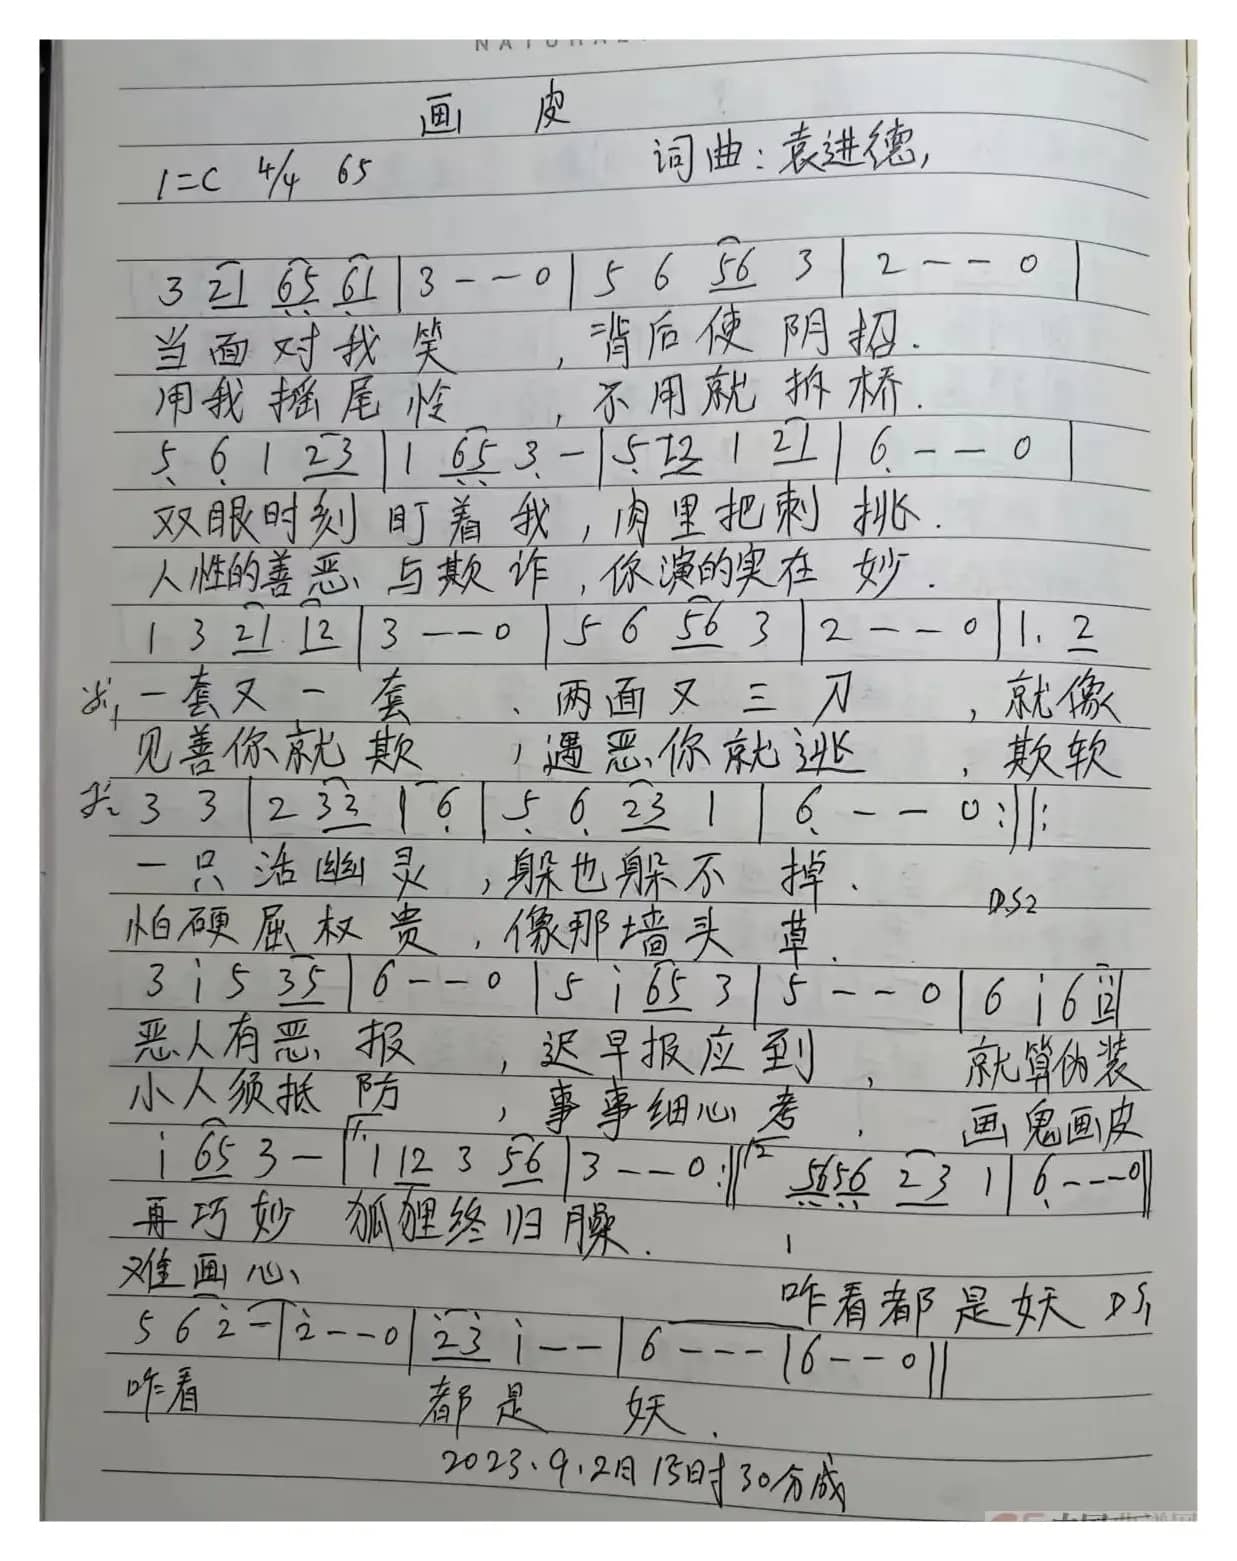 NATURAL
画 皮
1=C 4/4 65 词曲：袁进德,
3 21 65 61 | 3 - - 0 | 5 6 56 3 | 2 - - 0 |
当面对我笑 , 背后使阴招.
用我摇尾怜 , 不用就拆桥.
5 6 1 23 | 1 65 3 - | 5 12 1 21 | 6 - - 0 |
双眼时刻盯着我, 肉里把刺挑.
人性的善恶与欺诈, 你演的实在妙.
1 3 21 12 | 3 - - 0 | 5 6 56 3 | 2 - - 0 | 1. 2
一套又一套 、两面又三刀 , 就像
见善你就欺 , 遇恶你就逃 , 欺软
3 3 | 2 33 1 6 | 5 6 23 1 | 6 - - 0 :||:
一只活幽灵, 躲也躲不掉.
D.S2
怕硬屈权贵, 像那墙头草.
3 i 5 35 | 6 - - 0 | 5 i 65 3 | 5 - - 0 | 6 i 6 i2 |
恶人有恶报 , 迟早报应到 , 就算伪装
小人须抵防 , 事事细心考 . 画鬼画皮
i 65 3 - | 1. 1 12 3 56 | 3 - - 0 :|| 2 5656 23 1 | 6 - - - 0 ||
再巧妙 狐狸终归臊. 1
难画心、
咋看都是妖 DS1
5 6 2 - | 2 - - 0 | 23 i - - | 6 - - - | 6 - - 0 ||
咋看 都是 妖.
2023.9.2日15时30分成